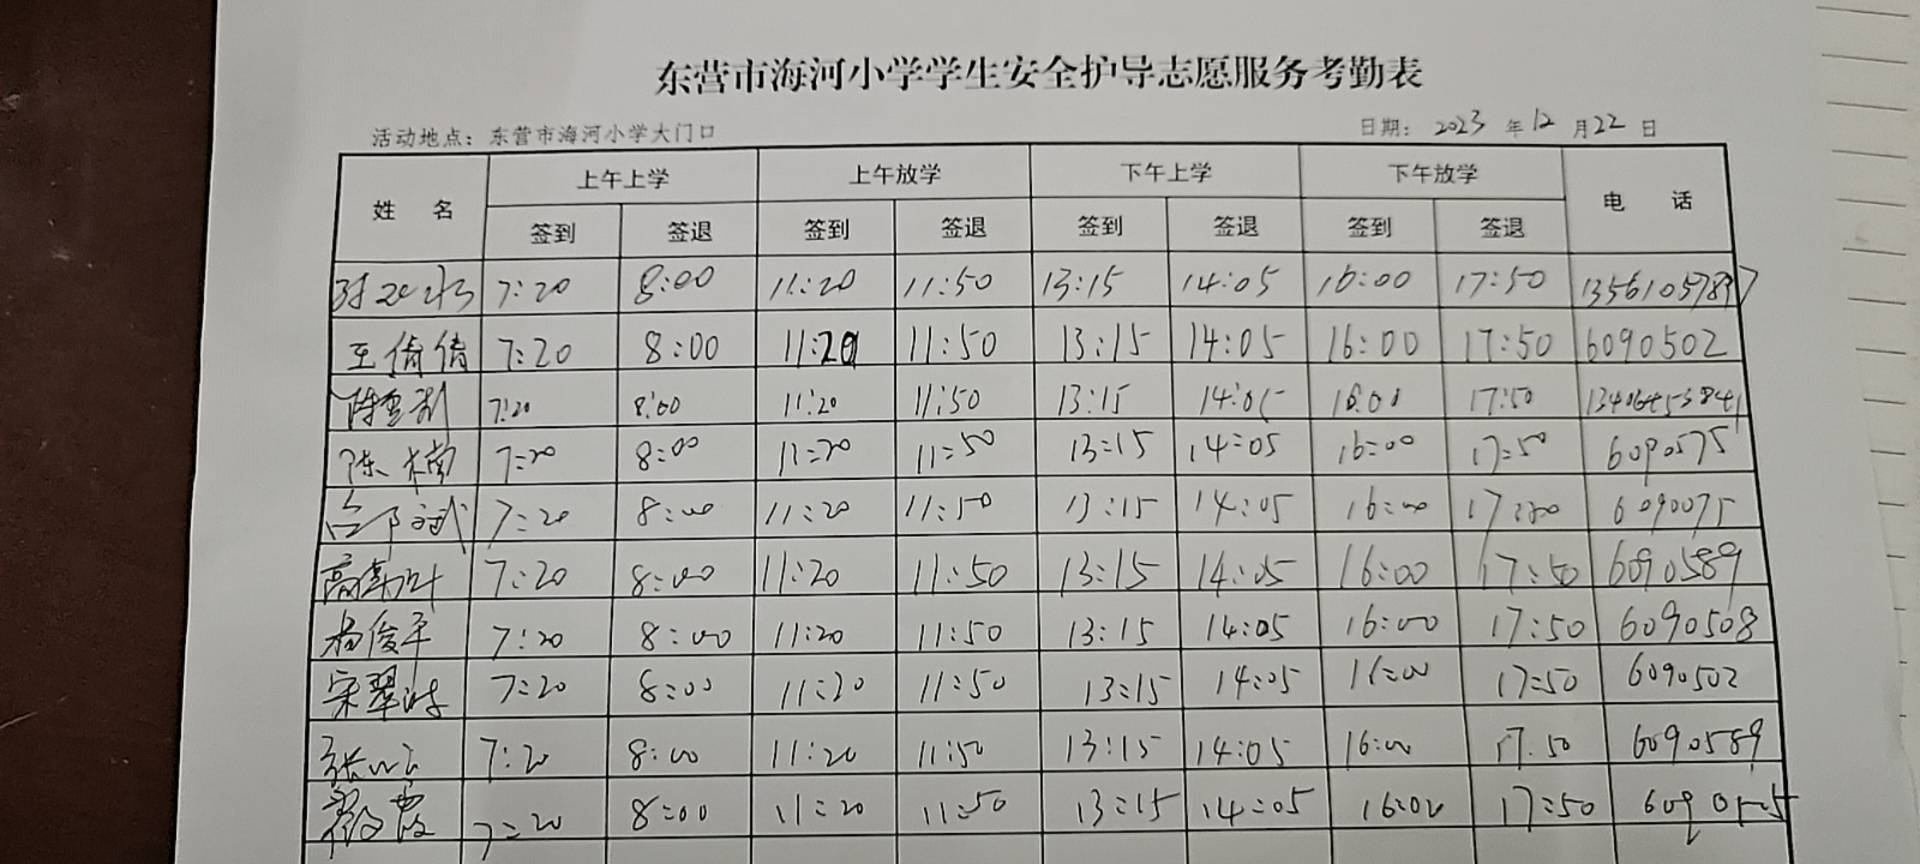 东营市海河小学学生安全护导志愿服务考勤表
活动地点：东营市海河小学大门口 日期：2023年12月22日
姓名 上午上学 上午放学 下午上学 下午放学 电话
签到 签退 签到 签退 签到 签退 签到 签退
7:20 8:00 11:20 11:50 13:15 14:05 16:00 17:50
王倩倩 7:20 8:00 11:20 11:50 13:15 14:05 16:00 17:50 6090502
7:20 8:00 11:20 11:50 13:15 14:05 16:00 17:50
陈木楠 7:20 8:00 11:20 11:50 13:15 14:05 16:00 17:50 6090575
7:20 8:00 11:20 11:50 13:15 14:05 16:00 6090075
7:20 8:00 11:20 11:50 13:15 14:05 16:00 17:50 6090589
杨俊平 7:20 8:00 11:20 11:50 13:15 14:05 16:00 17:50 6090508
7:20 8:00 11:20 11:50 13:15 14:05 16:00 17:50 6090502
7:20 8:00 11:20 11:50 13:15 14:05 16:00 17.50 6090589
7:20 8:00 11:20 11:50 13:15 14:05 16:00 17:50